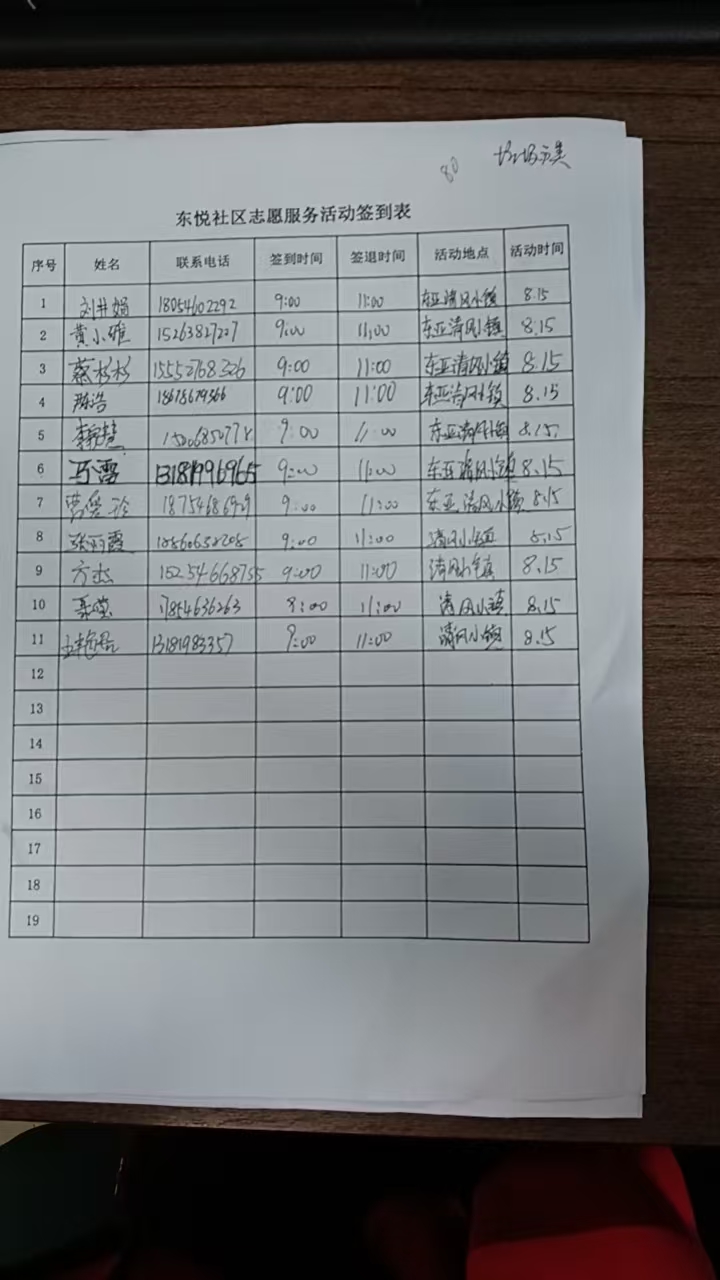 80
东悦社区志愿服务活动签到表
序号 姓名 联系电话 签到时间 签退时间 活动地点 活动时间
1 18054602292 9:00 11:00 东亚清风小镇 8.15
2 黄小雅 15263827227 9:00 11:00 东亚清风小镇 8.15
3 蔡杉杉 15552768326 9:00 11:00 东亚清风小镇 8.15
4 陈浩 9:00 11:00 东亚清风小镇 8.15
5 9:00 11:00 东亚清风小镇 8.15
6 马雪 13181996965 9:00 11:00 东亚清风小镇 8.15
7 9:00 11:00 东亚清风小镇 8.15
8 张丽霞 9:00 11:00 清风小镇 8.15
9 15254668755 9:00 11:00 清风小镇 8.15
10 17854636263 11:00 清风小镇 8.15
11 13181983357 9:00 11:00 清风小镇 8.15
12
13
14
15
16
17
18
19